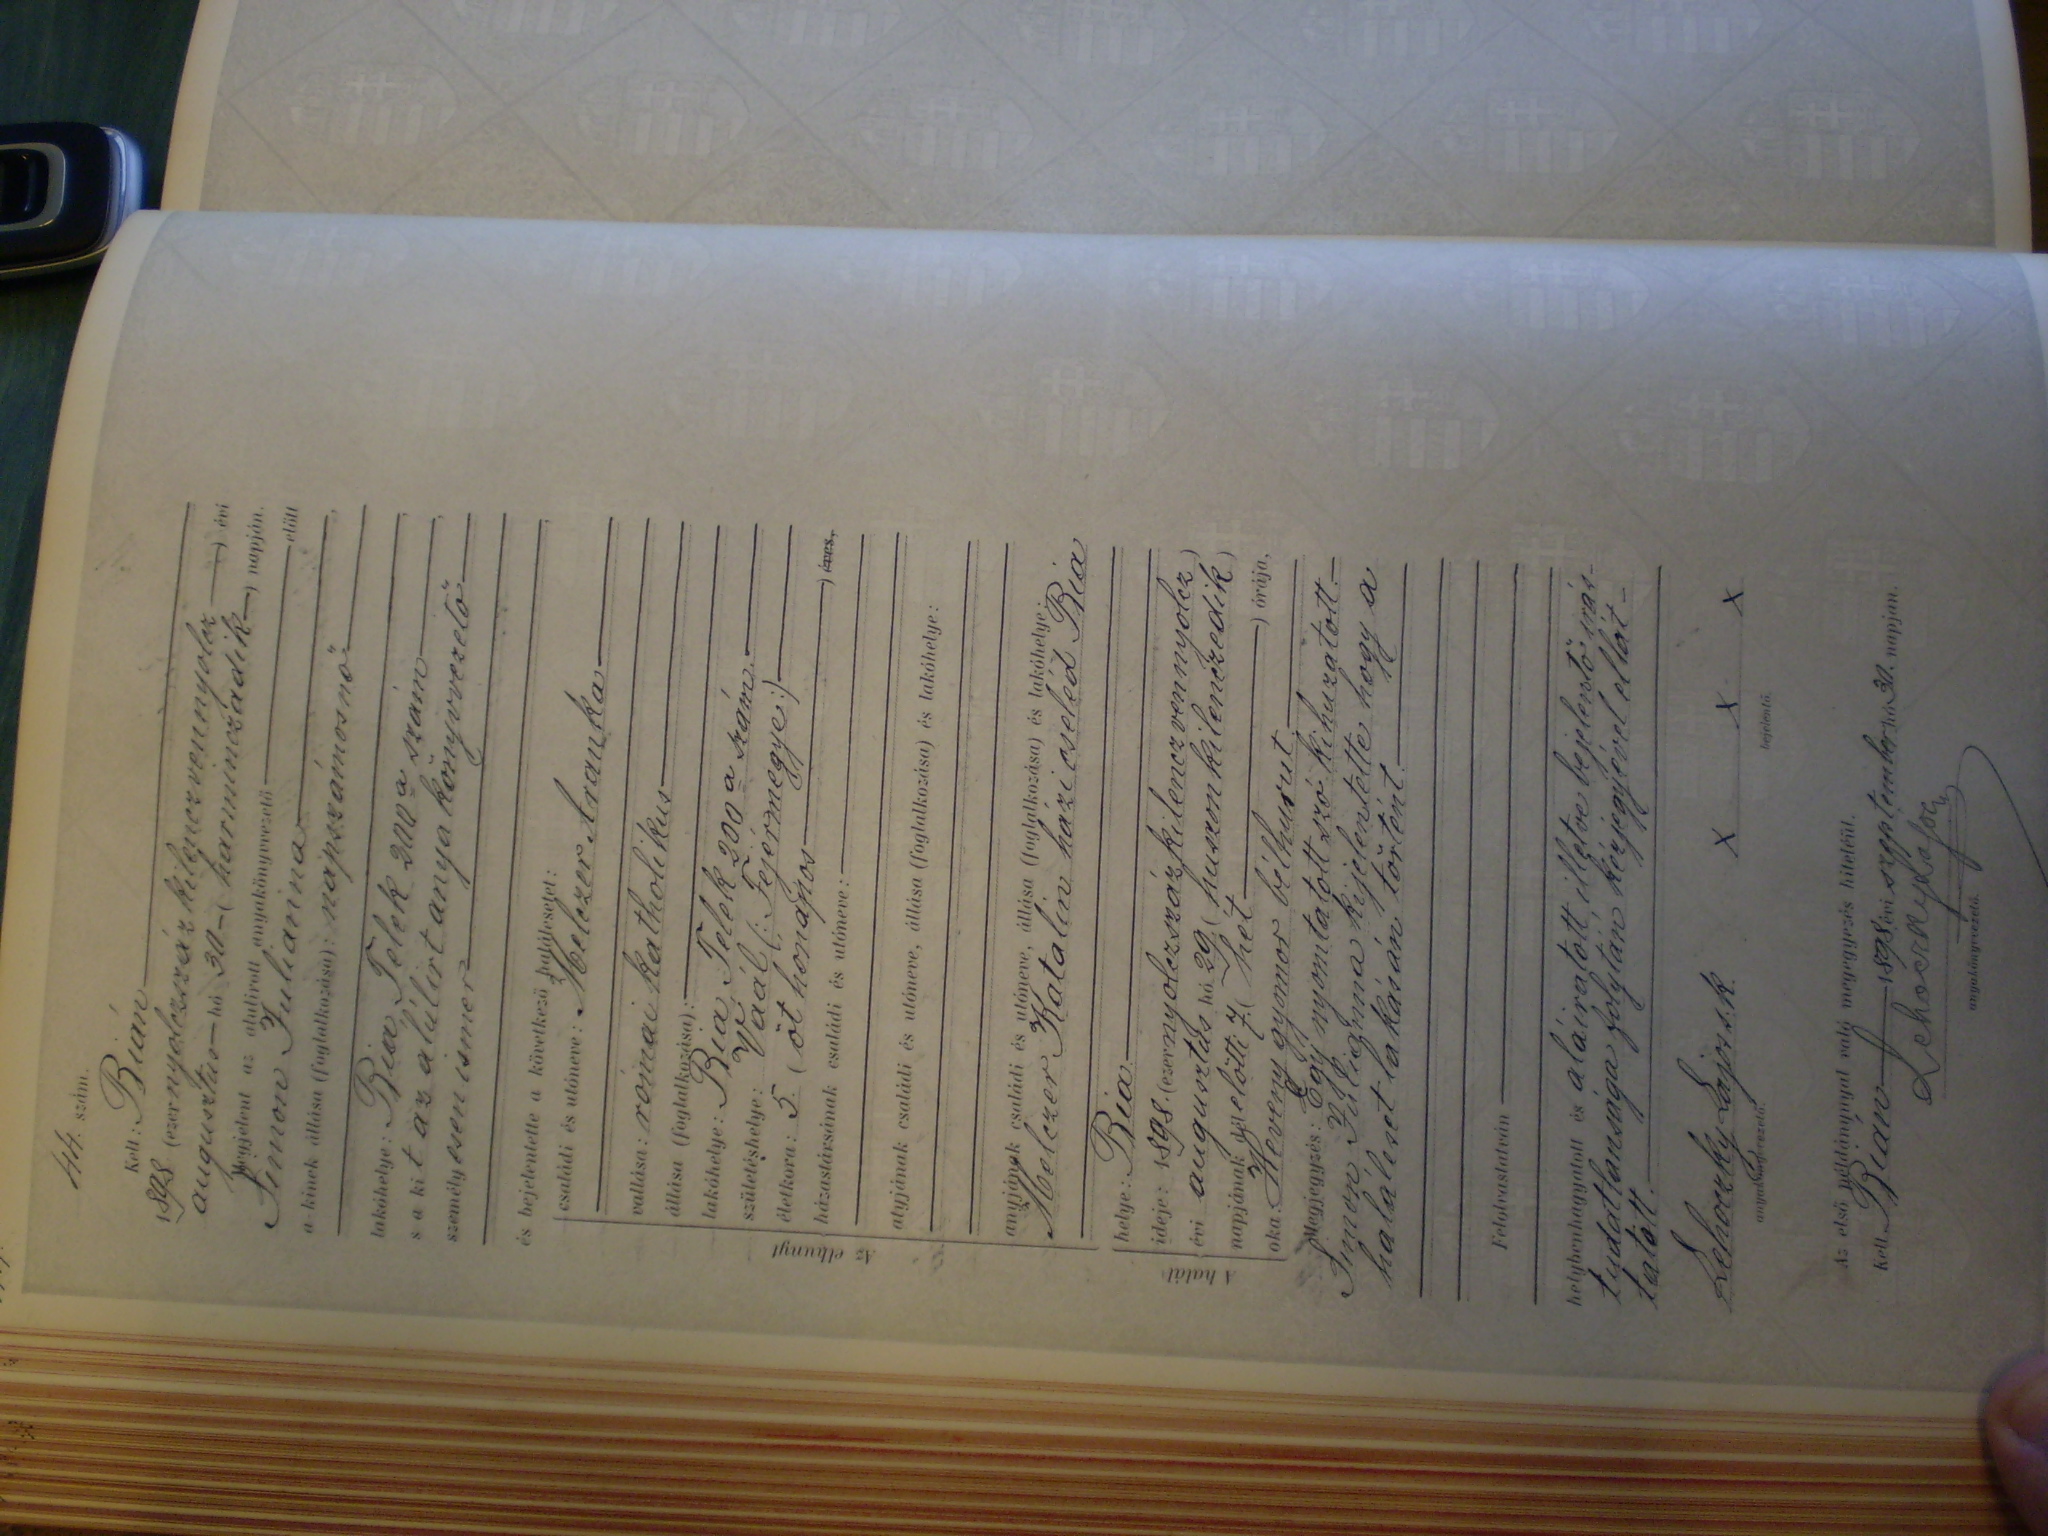 144. szám.
Kelt: Bián
1898 (ezernyolczszázkilenczvennyolcz) évi
augusztus hó 30- (harminczadik) napján.
Megjelent az alulirott anyakönyvezető előtt
Simon Julianna
a kinek állása (foglalkozása): napszámosnő
lakóhelye: Bia Telek 200a szám
s a kit az alúlirt anyakönyvvezető
személyesen ismer
és bejelentette a következő halálesetet:
Az elhunyt
családi és utóneve: Melczer Aranka
vallása: római katholikus
állása (foglalkozása):
lakóhelye: Bia Telek 200a szám.
születéshelye: Vaál (: Fejérmegye :)
életkora: 5 (öt hónapos) éves,
házastársának családi és utóneve:
atyjának családi és utóneve, állása (foglalkozása) és lakóhelye:
anyjának családi és utóneve, állása (foglalkozása) és lakóhelye:
Melczer Katalin házicseléd Bia
A halál
helye: Bia
ideje: 1898. (ezernyolczszázkilenczvennyolcz)
évi augusztus hó 29 (huszonkilenczedik)
napjának dél előtti 7 (hét) órája,
oka: Heveny gyomor bélhurut.
Megjegyzés: Egy nyomtatott szó kihuzatott.
Simon Julianna kijelentette hogy a
haláleset lakásán történt.
Felolvastatván
helybenhagyatott és aláiratott illetve bejelentő irás-
tudatlansága folytán kézjegyével ellát-
tatott.
Lehoczky Lajos s. k. x x x
anyakönyvvezető. bejelentő.
Az első példánnyal való megegyezés hiteléül.
Kelt. Bian 1898 évi szeptember hó 30. napján.
Lehoczky Lajos
anyakönyvvezető.